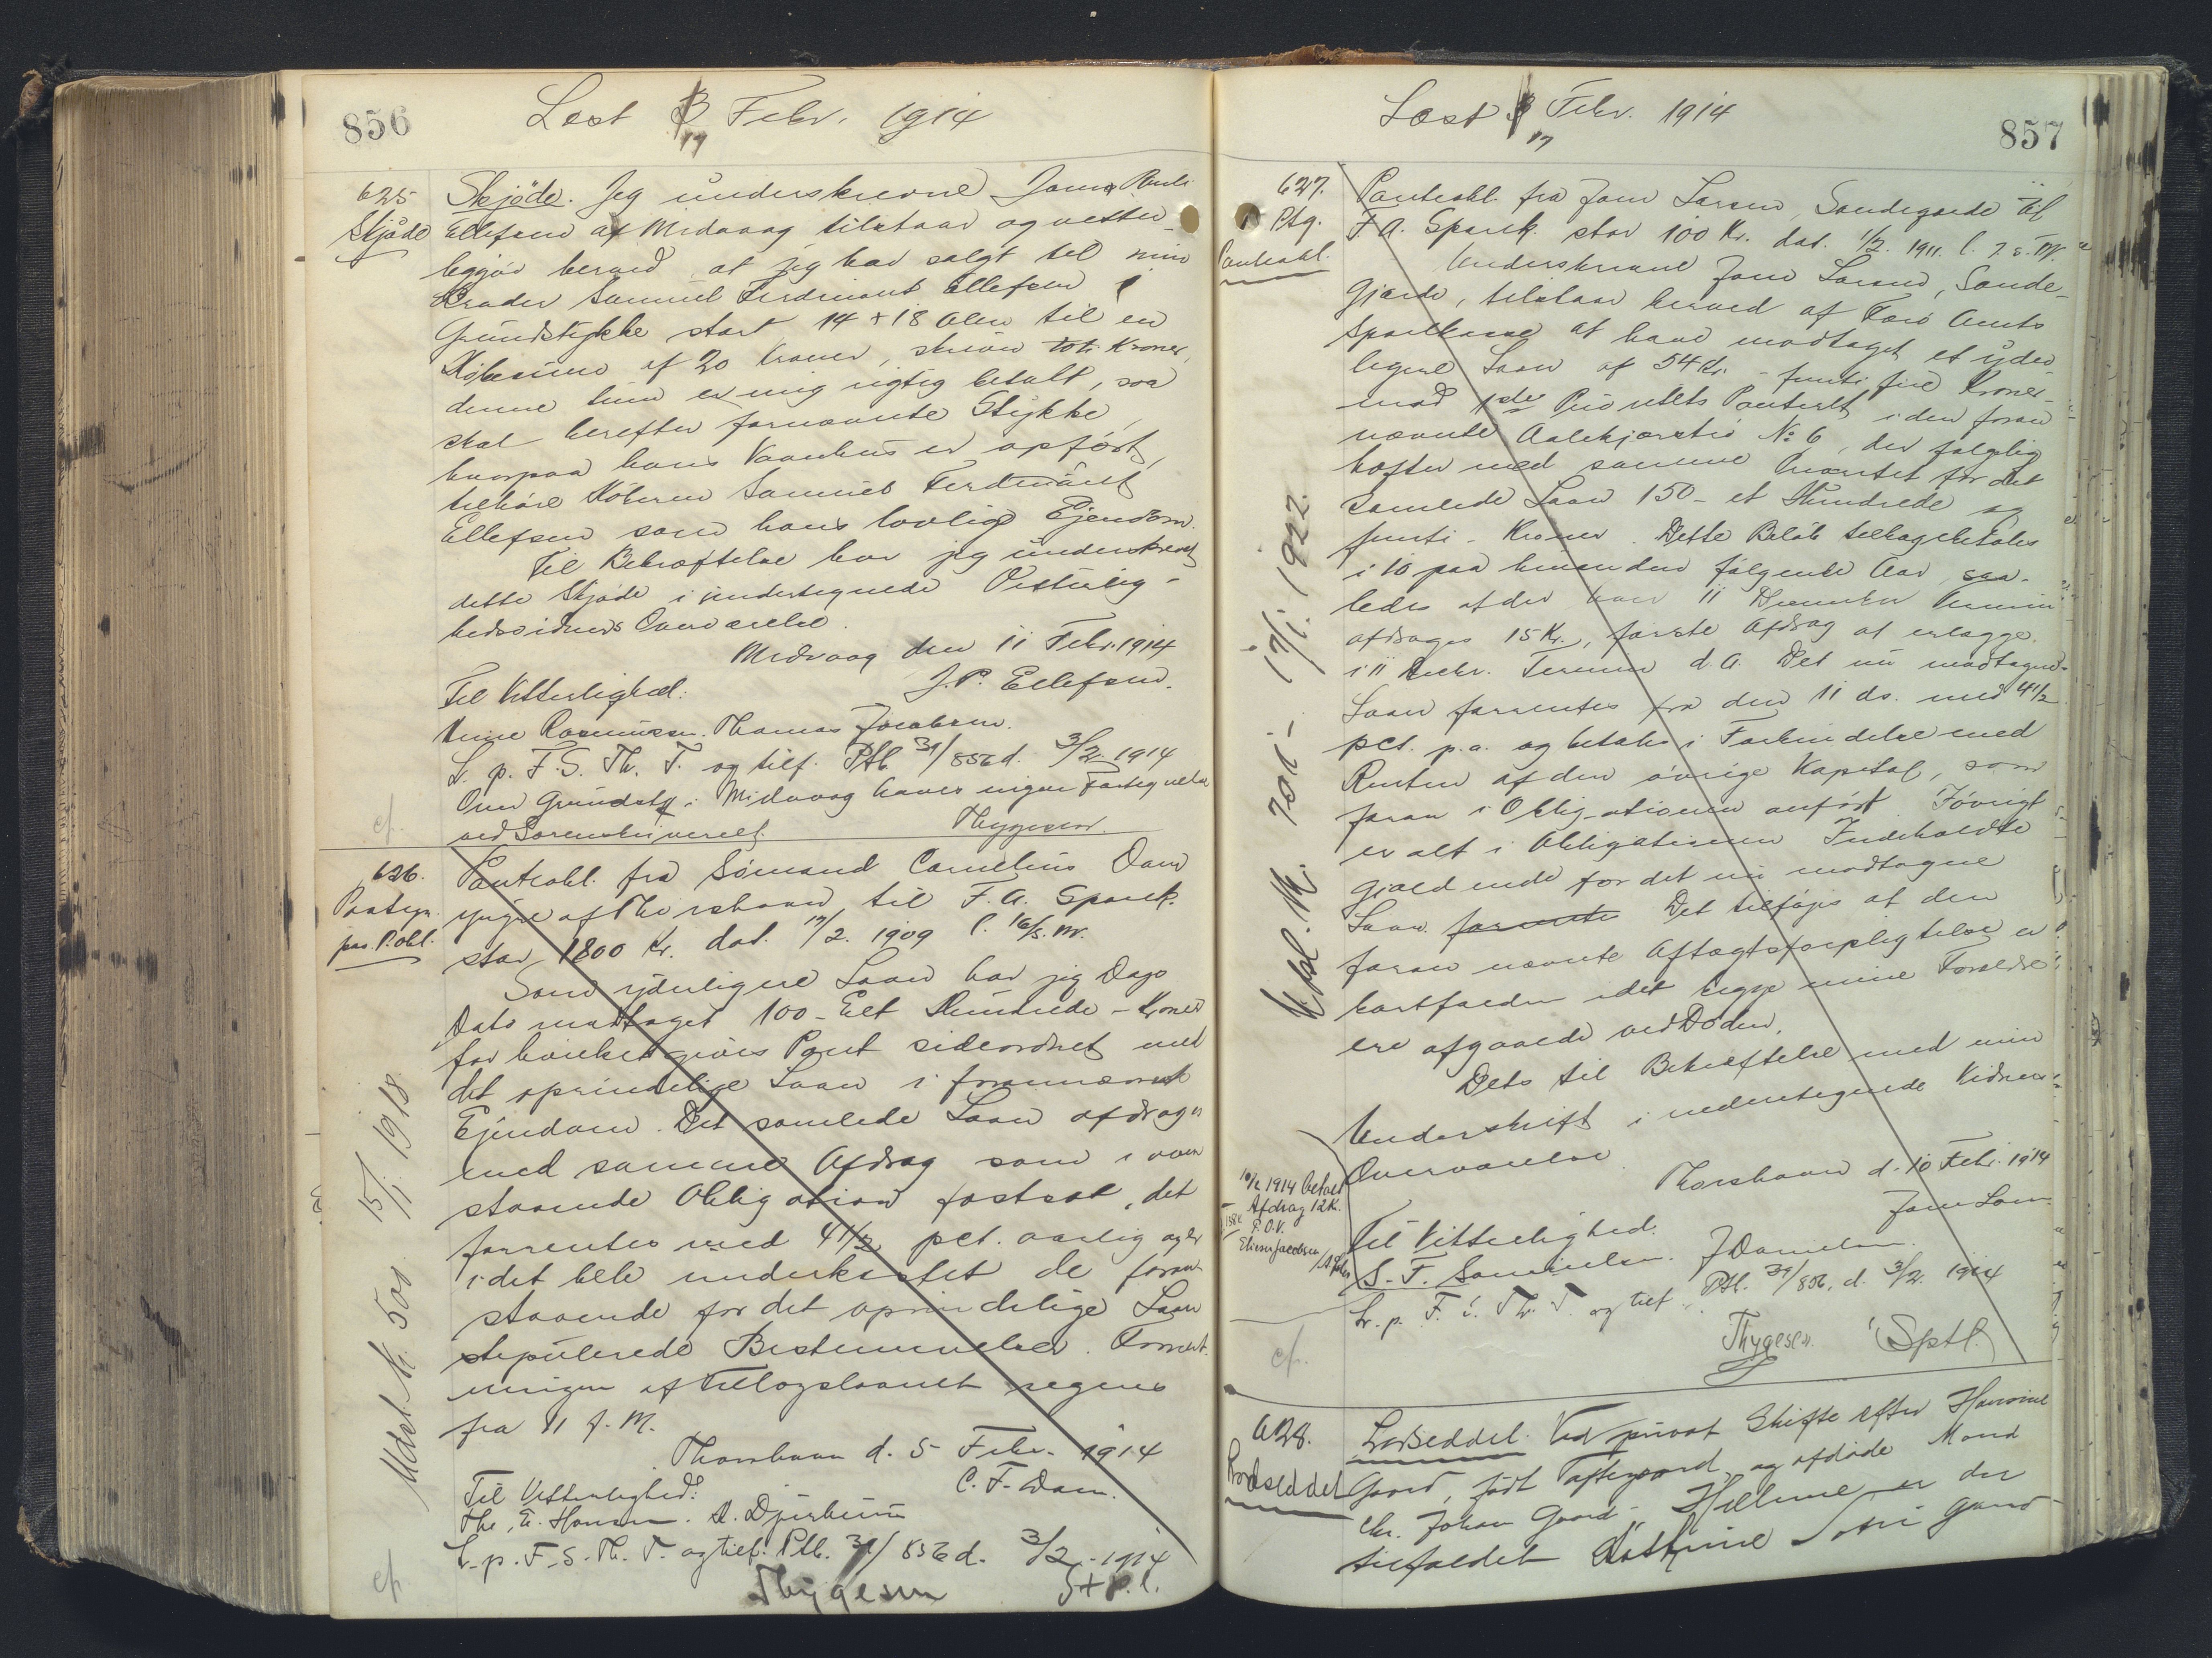 856
Læst 3 Febr. 1914
17
625
Skjøde
Skjøde. Jeg underskrevne Joen Pauli
Ellefsen af Midvaag tilstaar og vitter-
liggjør herved, at jeg har salgt til min
Broder Samuel Ferdinant Ellefsen
Grundstykke stort 14 + 18 Alen til en
Købesum af 20 Kroner, skriver toti Kroner,
denne Sum er mig rigtig betalt, saa
skal herefter fornævnte Stykke,
hvorpaa hans Vaanhus er opført,
tilhøre Køberen Samuel Ferdinant
Ellefsen som hans lovlige Ejendom.
Til Bekræftelse har jeg underskrevet
dette Skjøde i undertegnede Vitterlig-
hedsvidners Overværelse.
Midvaag den 11 Febr. 1914
J. P. Ellefsen.
Til Vitterlighed:
Rasmussen. Thomas Jacobsen.
L. p. F. S. Th. T. og tilf. Ptb. 31/856 d. 3/2 1914
Over Grundst i Midvaag haves ingen Fortegnelse
ved Sorenskriveriet.
Thygesen.
cf.
626.
Paategn.
paa P.obl.
Panteobl. fra Sømand Cornelius Dam
yngre af Thorshavn til F. A. Spark.
stor 1800 Kr. dat. 17/2. 1909 l. 16/5. M.
Som yderligere Laan har jeg Dags
Dato modtaget 100 - Eet Hundrede - Kroner
for hvilket gives Pant sideordnet med
det oprindelige Laan i forannævnte
Ejendom. Det samlede Laan afdrages
med samme Afdrag som i oven
staaende Obligation fastsat, det
forrentes med 4 1/2 pct. aarlig og er
i det hele underkastet de foran-
staaende for det oprindelige Laan
stipulerede Bestemmelser. Forrent-
ningen af Tillægslaanet regnes
fra 11 f. M.
Thorshavn d. 5 Febr. 1914
C. F. Dam.
Til Vitterlighed:
Th. E. Hansen. A. Djurhuus
L. p. F. S. Th. T. og tilf. Ptb. 31/856 d. 3/2 - 1914
Thygesen
cf.
Udsl. Nr. 501 15/1. 1918
857
Læst 3 Febr. 1914
17
627.
Ptg.
Panteobl.
Panteobl. fra Joen Larsen, Sandegærde til
F. A. Spark. stor 100 Kr. dat. 1/2. 1911. l. 7. s. M.
Underskrevne Joen Larsen, Sande-
gjærde, tilstaar herved af Færø Amts
Sparekasse at have modtaget et yder-
ligere Laan af 54 Kr. - femti fire Kroner -
mod 1ste Prioritets Panteret i den foran
nævnte Aalekjærstrø No 6, der følgelig
hæfter med samme Prioritet for det
samlede Laan 150 - et Hundrede og
femti - Kroner. Dette Beløb tilbagebetales
i 10 paa hinanden følgende Aar, saa-
ledes at der hver 11 December Termin
afdrages 15 Kr., første Afdrag at erlægge
i 11 Decbr. Termin d. A. Det nu modtagne
Laan forrentes fra den 11 ds. med 4 1/2
pct. p. a. og betales i Forbindelse med
Renten af den øvrige Kapital, som
foran i Obligationen anført. Iøvrigt
er alt i Obligationen Indeholdte
gjældende for det nu modtagne
Laan. forrentes Det tilføjes at den
foran nævnte Aftægtsforpligtelse er
bortfalden idet begge mine Forældre
ere afgaaede ved Døden.
Dets til Bekræftelse med min
Underskrift i undertegnede Vidners
Overværelse.
Thorshavn d. 10 Febr. 1914
Joen Larsen
Til Vitterlighed:
S. F. Samuelsen. J Danielsen.
L. p. F. S. Th. T. og tilf. Ptb. 31/856, d. 3/2. 1914
Thygesen. Sptl.
10/2 1914 betalt
Afdrag 12 K.
P. O. V.
Eliesen Jacobsen
cf.
Udsl. Nr. 701 - 17/1. 1922.
628.
Lodseddel
Lodseddel. Ved privat Skifte efter Hansine
Gaard, født Toftegaard, og afdøde Mand
Chr. Johan Gaard, er der
tilfaldet